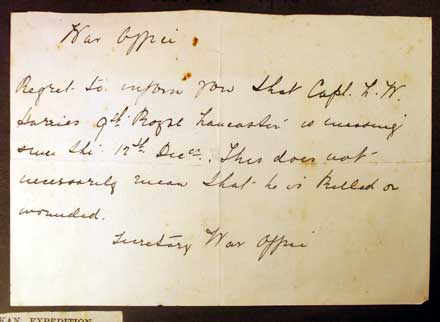 War Office
Regret to inform you that Capt. L. W.
Jarvies 9th Royal Lancaster is missing
since the 12th Dec. This does not
necessarily mean that he is killed or
wounded.
Secretary War Office
KAN EXPEDITION